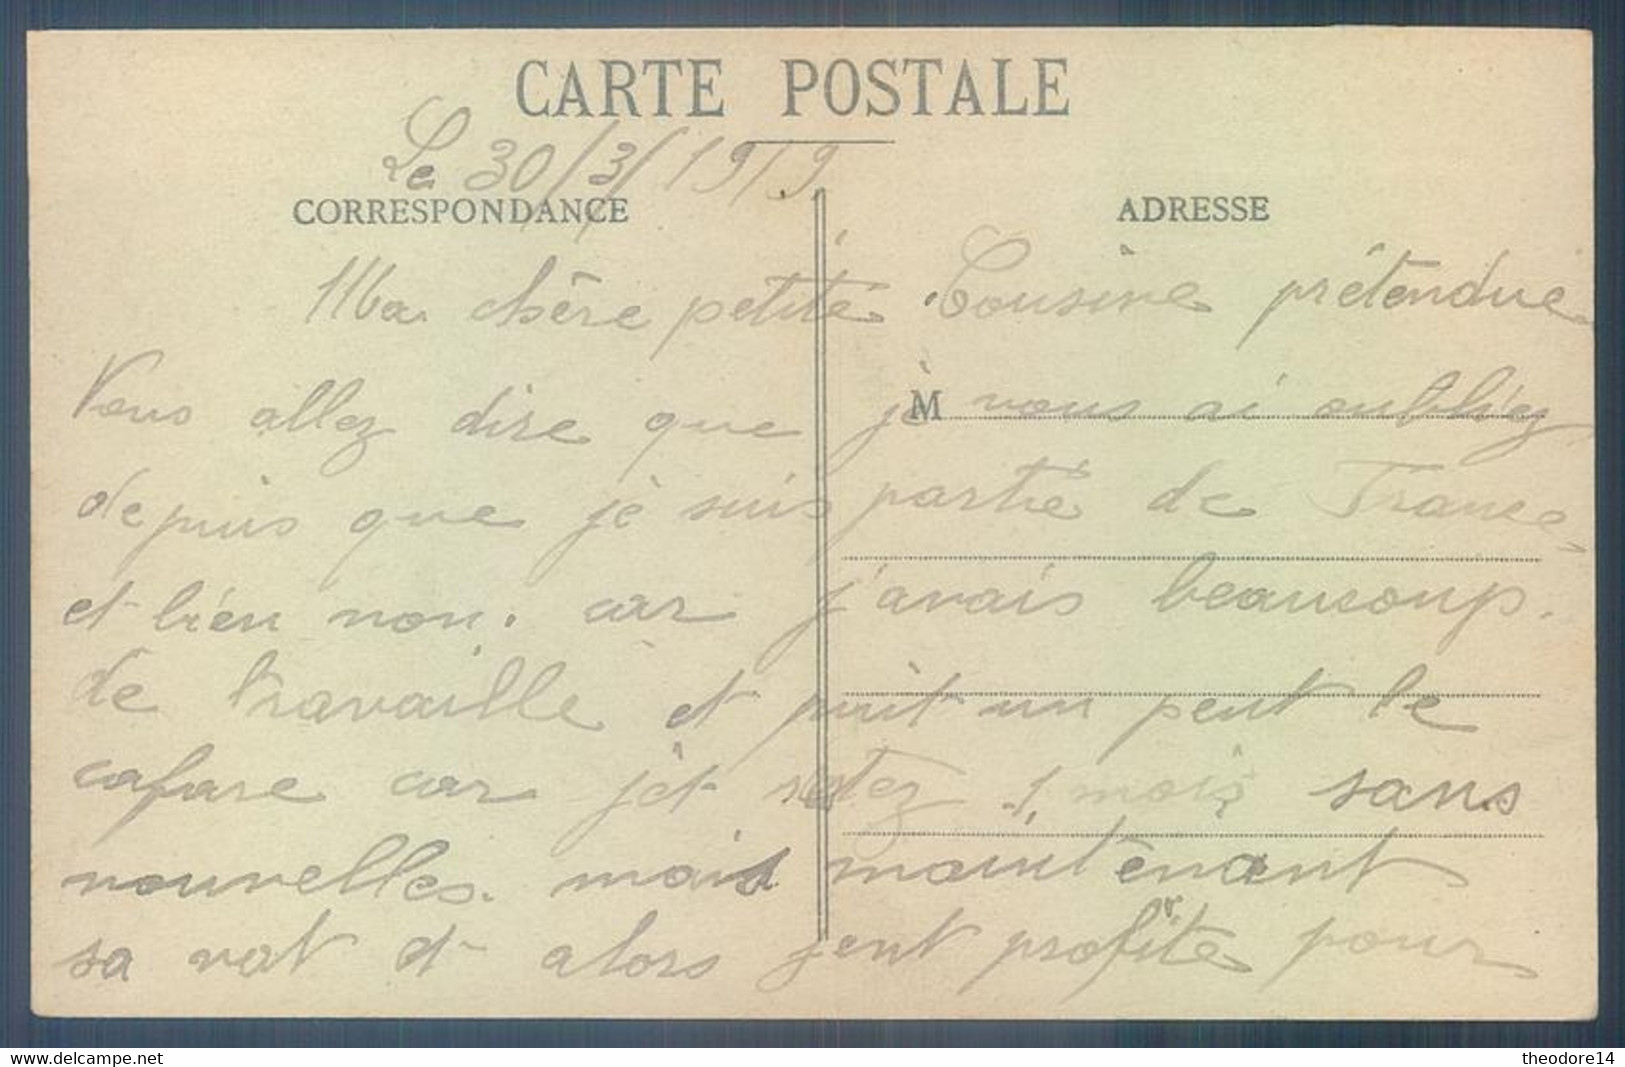 CARTE POSTALE
Le 30/3/1919.
CORRESPONDANCE
ADRESSE
Ma chère petite Cousine prétendue
Vous allez dire que je vous ai oubliez
M
depuis que je suis partie de France,
et bien non. car j'avais beaucoup.
de travaille et puit un peut le
cafare car j'et restez 1 mois sans
nouvelles. mais maintenant
sa vat et alors jent profite pour
theodore14
www.delcampe.net